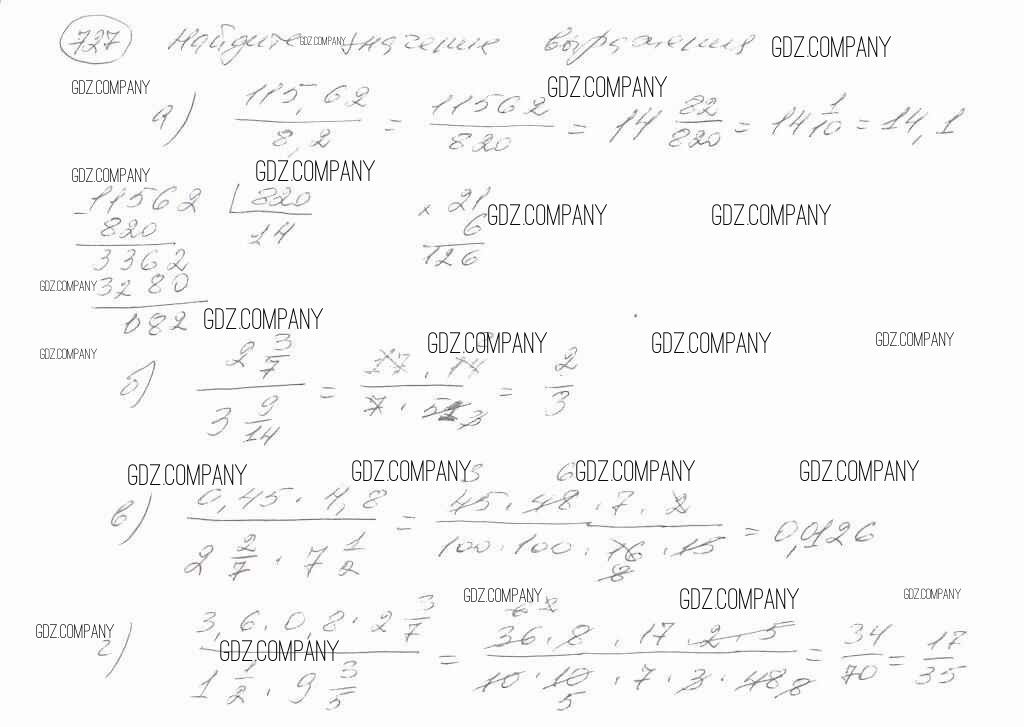 727 Найдите значение выражения
GDZ.COMPANY GDZ.COMPANY
GDZ.COMPANY GDZ.COMPANY
а) 115,62 / 8,2 = 11562 / 820 = 14 82/820 = 14 1/10 = 14,1
GDZ.COMPANY GDZ.COMPANY
11562 | 820
820 14
3362
3280
082
× 21
6
126
GDZ.COMPANY GDZ.COMPANY
GDZ.COMPANY GDZ.COMPANY
GDZ.COMPANY GDZ.COMPANY GDZ.COMPANY
GDZ.COMPANY
б) 2 3/7 / 3 9/14 = 17 · 14 / 7 · 51 3 = 2/3
GDZ.COMPANY GDZ.COMPANY GDZ.COMPANY GDZ.COMPANY
в) 0,45 · 4,8 / 2 2/7 · 7 1/2 = 45 · 48 · 7 · 2 / 100 · 100 · 16 · 15 = 0,126
GDZ.COMPANY GDZ.COMPANY GDZ.COMPANY
GDZ.COMPANY GDZ.COMPANY
г) 3,6 · 0,8 · 2 3/7 / 1 1/2 · 9 3/5 = 36 · 8 · 17 · 2 · 5 / 10 · 10 · 7 · 3 · 48 = 34/70 = 17/35